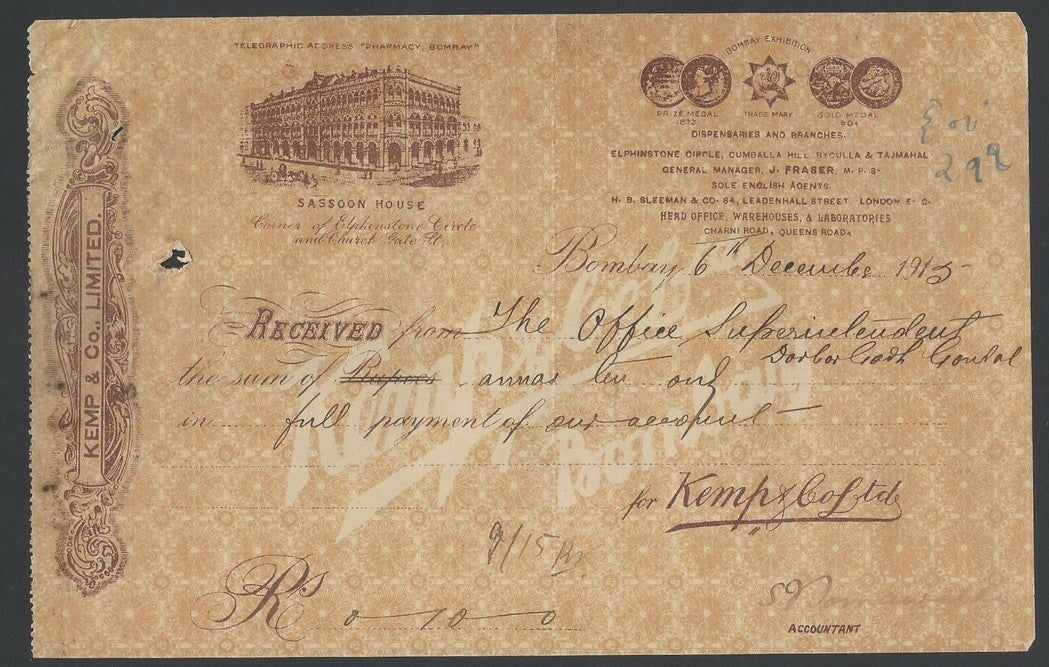 TELEGRAPHIC ADDRESS "PHARMACY, BOMBAY"
SASSOON HOUSE
Corner of Elphinstone Circle
and Church Gate St.
BOMBAY EXHIBITION
PRIZE MEDAL
1873
TRADE MARK
GOLD MEDAL
1904
DISPENSARIES AND BRANCHES.
ELPHINSTONE CIRCLE, CUMBALLA HILL, BYCULLA & TAJMAHAL
GENERAL MANAGER, J. FRASER, M. P. S.
SOLE ENGLISH AGENTS
H. B. SLEEMAN & CO. 64, LEADENHALL STREET, LONDON E. C.
HEAD OFFICE, WAREHOUSES, & LABORATORIES
CHARNI ROAD, QUEENS ROAD.
299
KEMP & Co., LIMITED.
Bombay 6th December 1915
RECEIVED from The Office Superintendent
Darbar Gadh Gondal
the sum of Rupees annas ten only
in full payment of our account
Kemp & Co
Bombay
for Kemp & Co Ltd
9/15
Rs 0 - 10 - 0
ACCOUNTANT